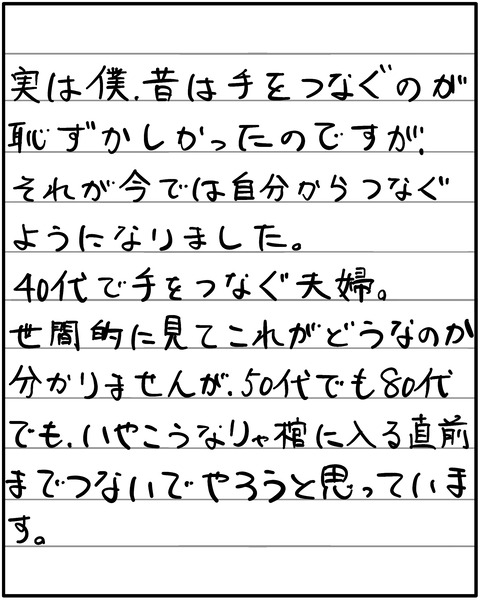 実は僕、昔は手をつなぐのが
恥ずかしかったのですが、
それが今では自分からつなぐ
ようになりました。
40代で手をつなぐ夫婦。
世間的に見てこれがどうなのか
分かりませんが、50代でも80代
でも、いやこうなりゃ棺に入る直前
までつないでやろうと思っていま
す。